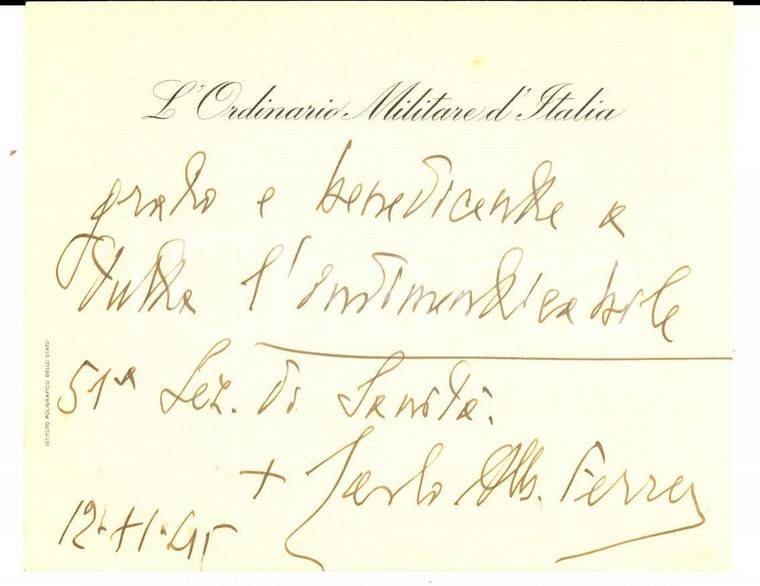 L'Ordinario Militare d'Italia
grato e benedicente a
tutta l'indimenticabile
51ª Sez. di Sanità.
+ Carlo Alb. Ferrero
12-XI-45
ISTITUTO POLIGRAFICO DELLO STATO